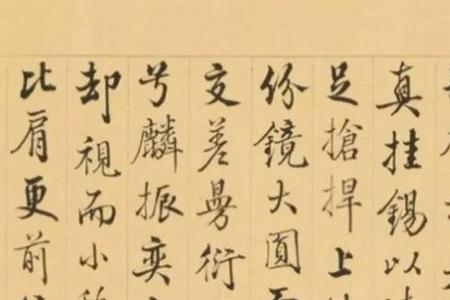 真挂錫以
足搶捍上
份鏡大圓
交差㝵衍
兮麟振奕
却視而小
比肩更前